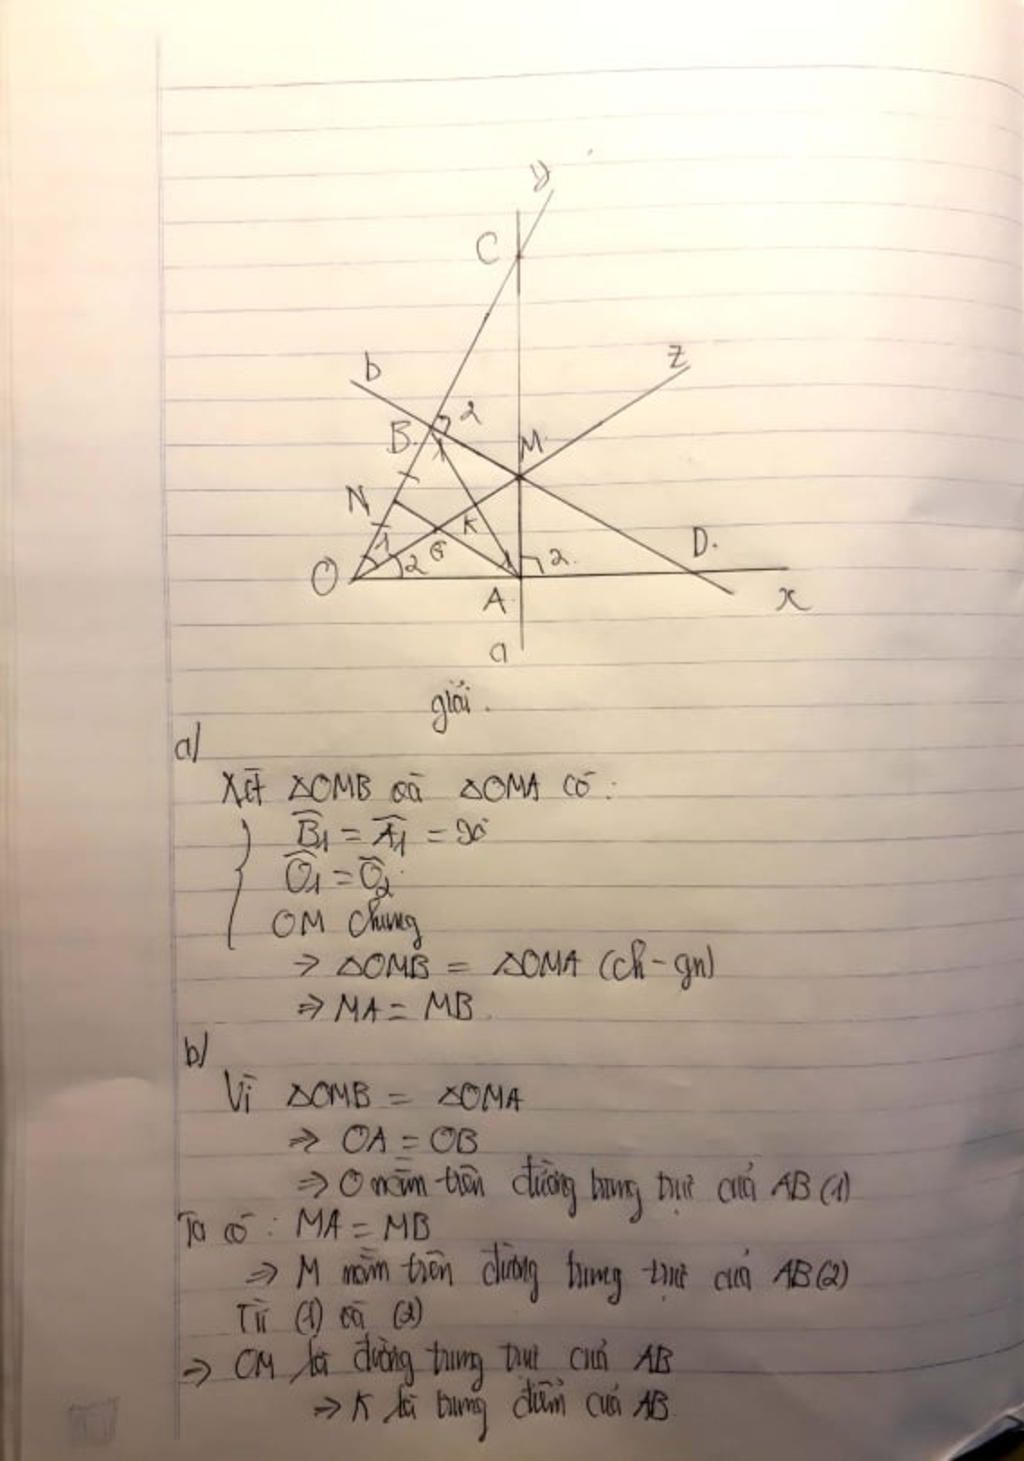 y
C
b
z
2
B
M
N
K
1
1
D
O
2
G
1
2
A
x
a
giải.
a/
Xét △OMB và △OMA có:
B̂1 = Â1 = 90
Ô1 = Ô2
OM chung
⇒ △OMB = △OMA (ch-gn)
⇒ MA = MB.
b/
Vì △OMB = △OMA
⇒ OA = OB
⇒ O nằm trên đường trung trực của AB (1)
Ta có: MA = MB
⇒ M nằm trên đường trung trực của AB (2)
Từ (1) và (2)
⇒ OM là đường trung trực của AB
⇒ K là trung điểm của AB